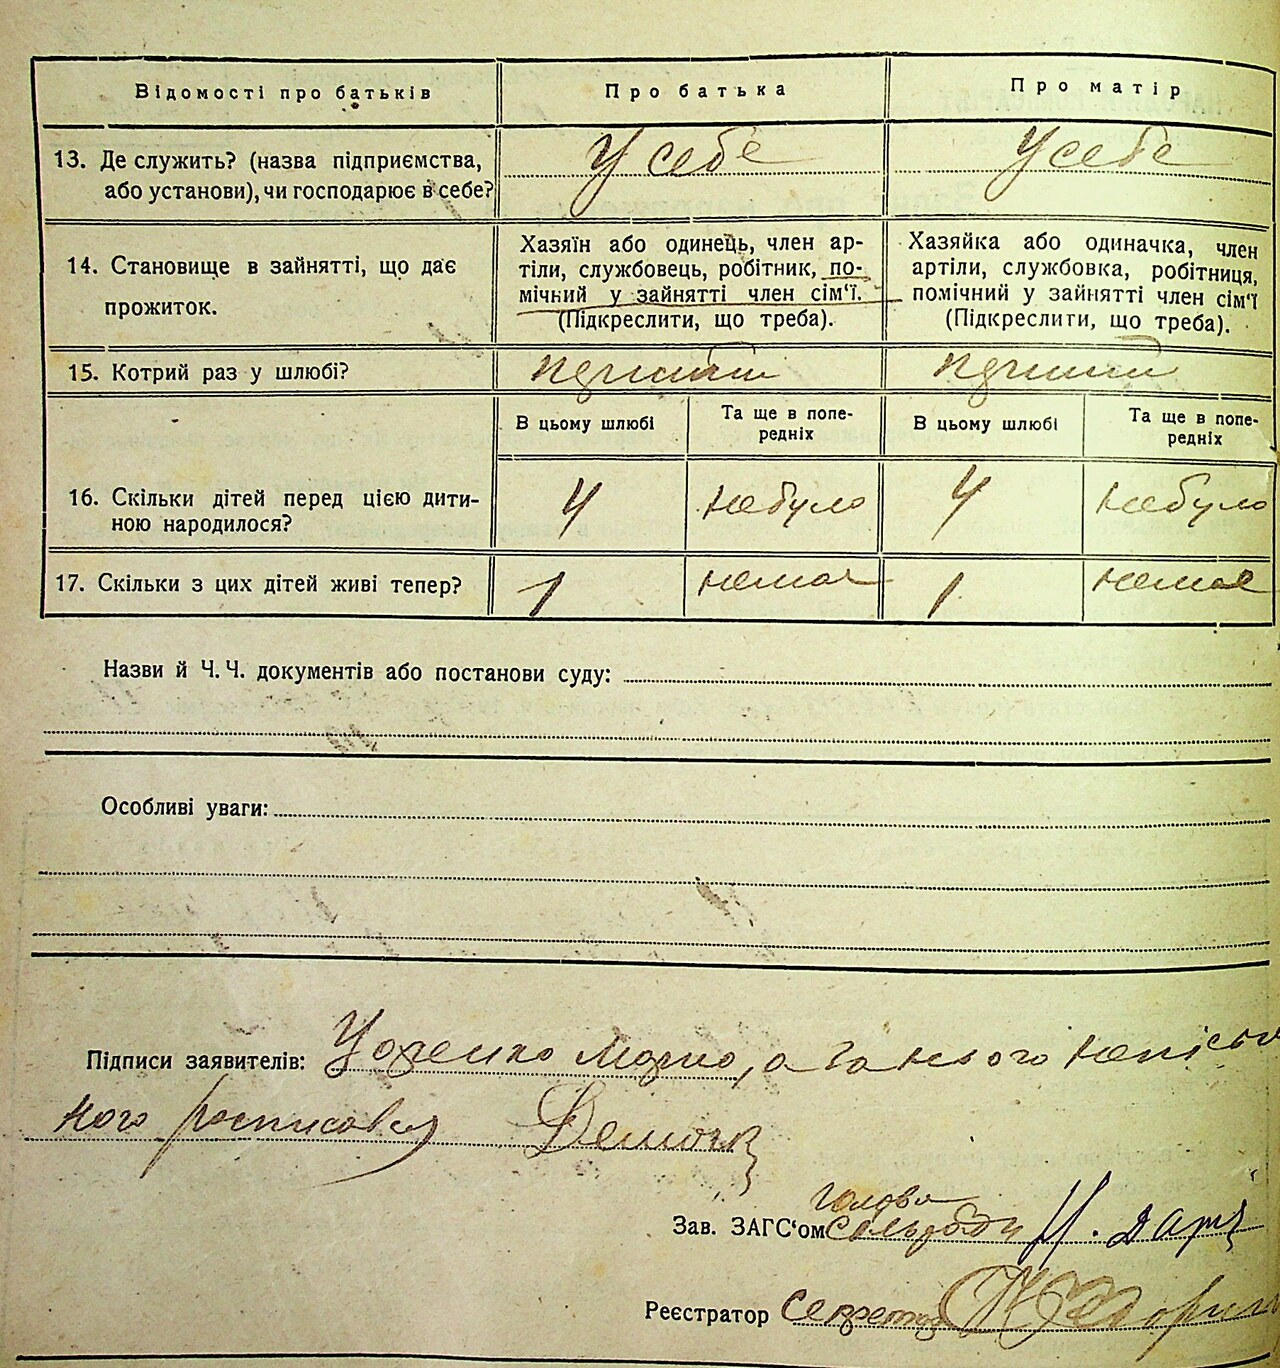 Відомості про батьків
Про батька
Про матір
13. Де служить? (назва підприємства,
або установи), чи господарює в себе?
У себе
У себе
14. Становище в зайнятті, що дає
прожиток.
Хазяїн або одинець, член ар-
тіли, службовець, робітник, по-
мічний у зайнятті член сім'ї.
(Підкреслити, що треба).
Хазяйка або одиначка, член
артіли, службовка, робітниця,
помічний у зайнятті член сім'ї
(Підкреслити, що треба).
15. Котрий раз у шлюбі?
В цьому шлюбі
Та ще в попе-
редніх
В цьому шлюбі
Та ще в попе-
редніх
16. Скільки дітей перед цією дити-
ною народилося?
4
небуло
4
небуло
17. Скільки з цих дітей живі тепер?
1
немає
1
немає
Назви й Ч. Ч. документів або постанови суду:
Особливі уваги:
Підписи заявителів: а за нього непісьм
ного росписався
Голова
Зав. ЗАГС'ом сільради
Реєстратор Секретар